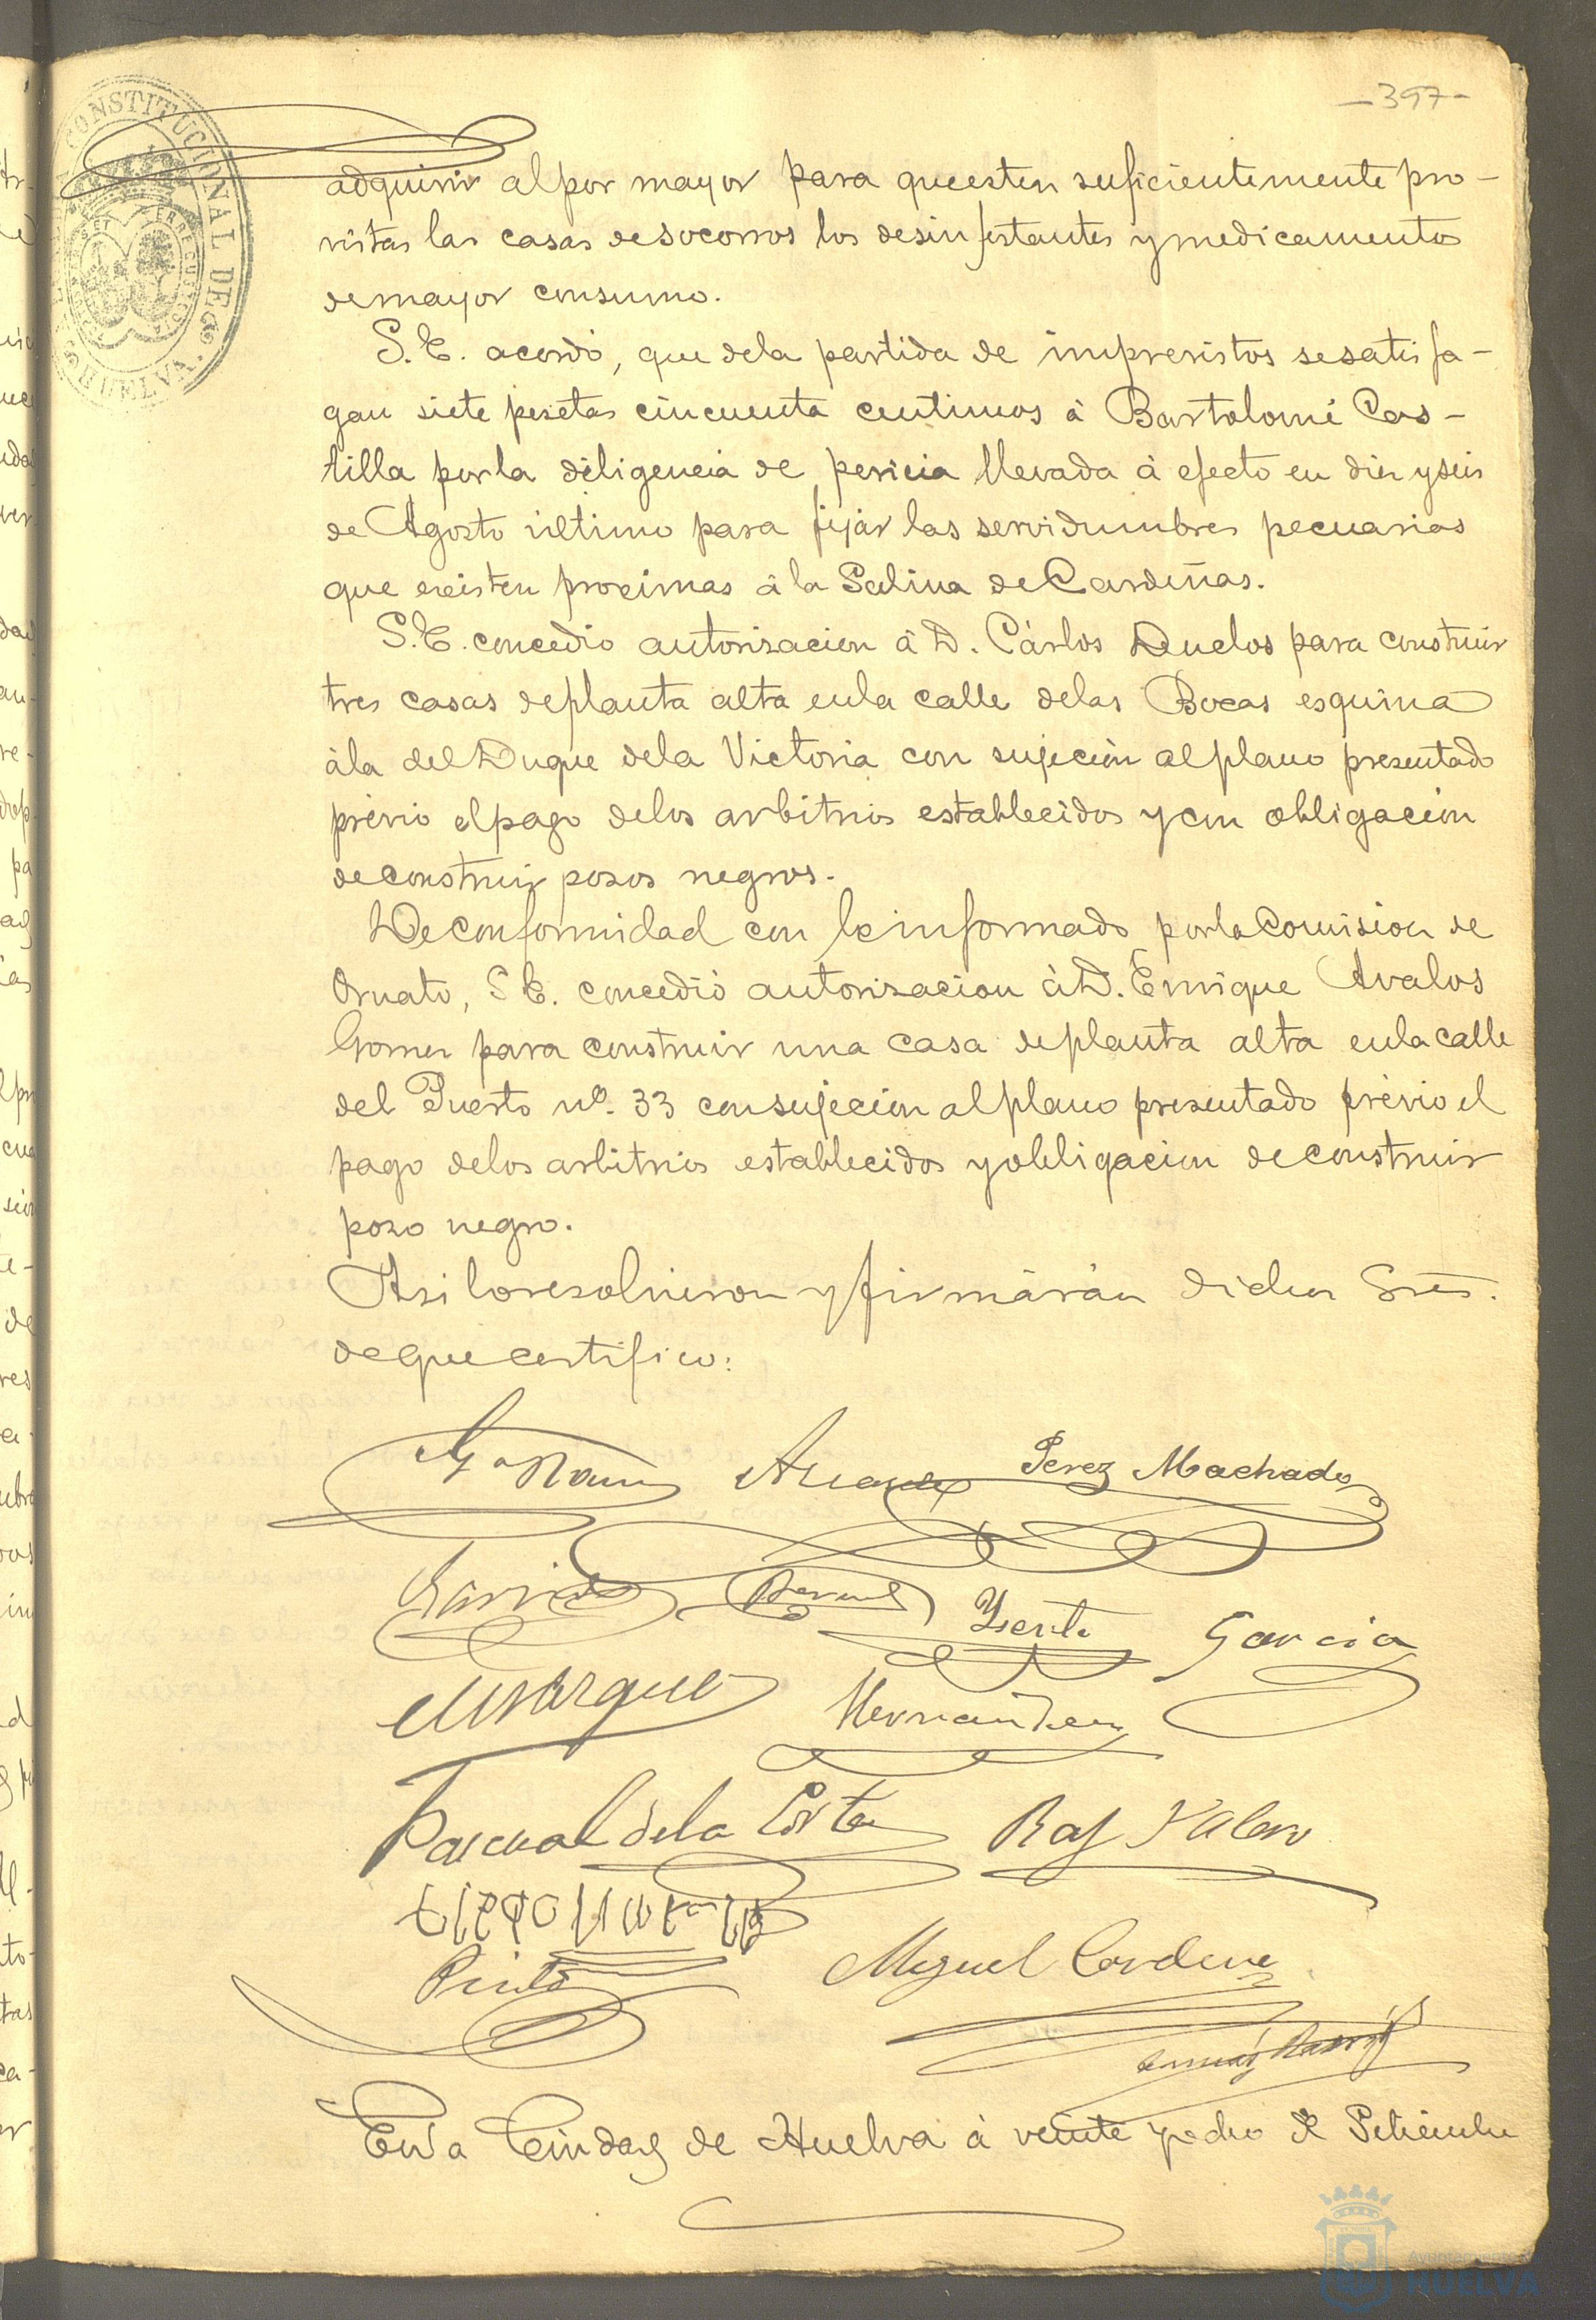 -397-
CONSTITUCIONAL DE
HUELVA
adquirir al por mayor para que esten suficientemente pro-
vistas las casas de socorros los desinfectantes y medicamentos
de mayor consumo.
S. E. acordó, que de la partida de imprevistos se satisfa-
gan siete pesetas cincuenta centimos á Bartolomé Cas-
tilla por la diligencia de pericia llevada á efecto en diez y seis
de Agosto último para fijar las servidumbres pecuarias
que existen proximas á la Salina de Cardeñas.
S. E. concedio autorizacion á D. Cárlos Duclos para construir
tres casas de planta alta en la calle de las Bocas esquina
á la del Duque de la Victoria con sujeción al plano presentado
prévio el pago de los arbitrios establecidos y con obligación
de construir pozos negros.
De conformidad con lo informado por la Comision de
Ornato, S. E. concedió autorizacion á D. Enrique Avalos
Gomez para construir una casa de planta alta en la calle
del Puerto nº. 33 con sujecion al plano presentado prévio el
pago de los arbitrios establecidos y obligacion de construir
pozo negro.
Asi lo resolvieron y firmárán dichos Sres.
de que certifico:
Perez Machado
Garcia
Marquez
Hernandez
Pascual de la Corta
Raf Valero
Pinto
Miguel Cordero
En la Ciudad de Huelva á veinte y ocho de Setiembre
HUELVA